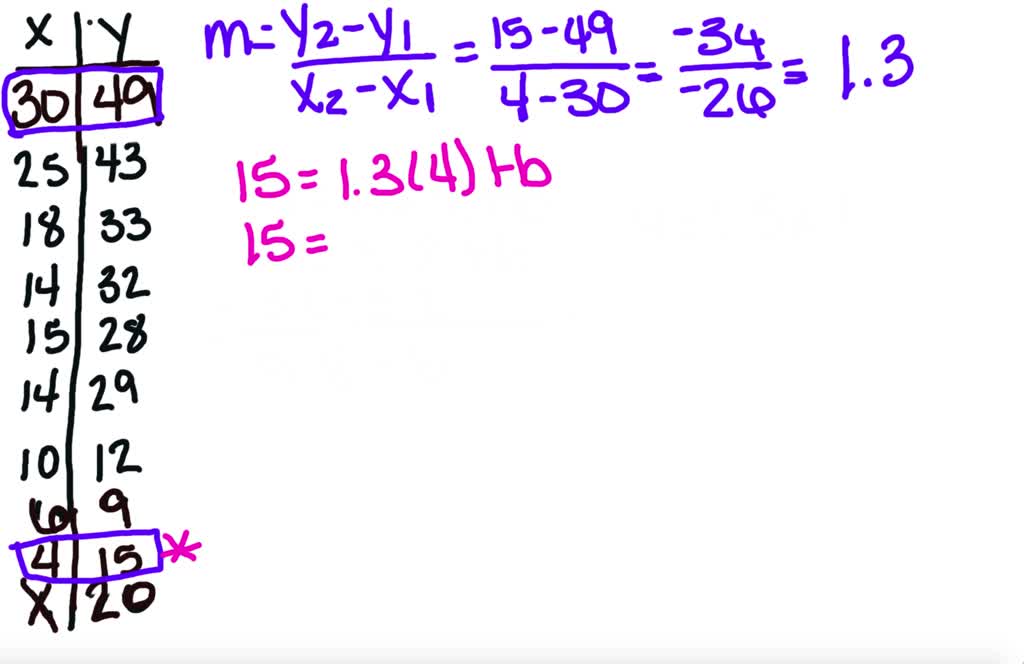 x | y
30 | 49
25 | 43
18 | 33
14 | 32
15 | 28
14 | 29
10 | 12
6 | 9
4 | 15 *
x | 20
m = y2 - y1 / x2 - x1 = 15 - 49 / 4 - 30 = -34 / -26 = 1.3
15 = 1.3(4) + b
15 =